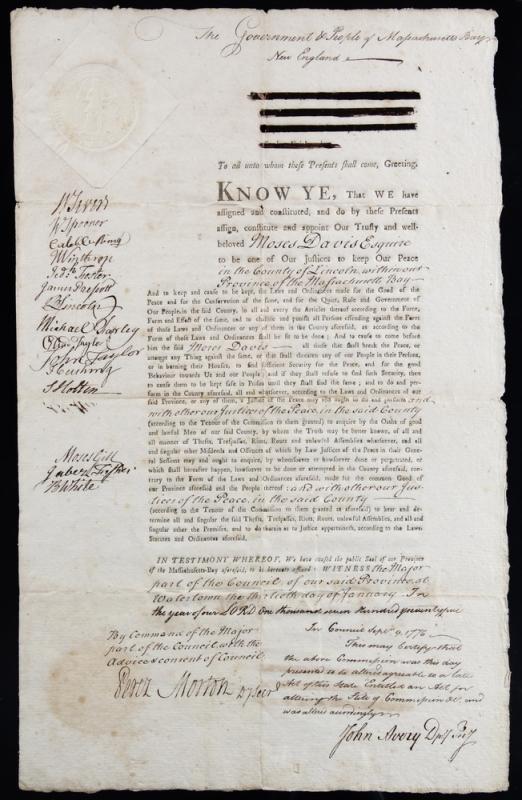 The Government & People of Massachusetts Bay
New England
To all unto whom these Presents shall come, Greeting.
KNOW YE, THAT WE have
assigned and constituted, and do by these Presents
assign, constitute and appoint Our Trusty and well-
beloved Moses Davis Esquire
to be one of Our Justices to keep Our Peace
in the County of Lincoln, within our
Province of the Massachusetts Bay
And to keep and cause to be kept, the Laws and Ordinances made for the Good of the
Peace and for the Conservation of the same, and for the Quiet, Rule and Government of
Our People, in the said County, in all and every the Articles thereof according to the Force,
Form and Effect of the same, and to chastise and punish all Persons offending against the Form
of those Laws and Ordinances or any of them in the County aforesaid, as according to the
Form of those Laws and Ordinances shall be fit to be done; And to cause to come before
him the said Moses Davis all those that shall break the Peace, or
attempt any Thing against the same, or that shall threaten any of our People in their Persons,
or in burning their Houses, to find sufficient Security for the Peace, and for the good
Behaviour towards Us and our People; and if they shall refuse to find such Security, then
to cause them to be kept safe in Prison until they shall find the same; and to do and per-
form in the County aforesaid, all and whatsoever, according to the Laws and Ordinances of our
said Province, or any of them, a Justice of the Peace may and ought to do and perform and
with other our Justices of the Peace, in the said County
(according to the Tenour of the Commission to them granted) to enquire by the Oaths of good
and lawful Men of our said County, by whom the Truth may be better known, of all and
all manner of Thefts, Trespasses, Riots, Routs and unlawful Assemblies whatsoever, and all
and singular other Misdeeds and Offences of which by Law Justices of the Peace in their Gene-
ral Sessions may and ought to enquire, by whomsoever or howsoever done or perpetrated, or
which shall hereafter happen, howsoever to be done or attempted in the County aforesaid, con-
trary to the Form of the Laws and Ordinances aforesaid, made for the common Good of
our Province aforesaid and the People thereof: and with other our Jus-
tices of the Peace, in the said County
(according to the Tenour of the Commission to them granted as aforesaid) to hear and de-
termine all and singular the said Thefts, Trespasses, Riots, Routs, unlawful Assemblies, and all and
singular other the Premises, and to do therein as to Justice appertaineth, according to the Laws,
Statutes and Ordinances aforesaid.
IN TESTIMONY WHEREOF, We have caused the public Seal of our Province
of the Massachusetts-Bay aforesaid, to be hereunto affixed: WITNESS the Major
part of the Council, of our said Province, at
Watertown the thirtieth day of January. In
the year of our LORD One thousand seven hundred seventy six
By Command of the Major
part of the Council, with the
Advice & consent of Council
Perez Morton Dy Secr
W Sever
W Spooner
Caleb Cushing
J Winthrop
Jed.h Foster
James Prescott
B Lincoln
Michael Farley
Taylor
John Taylor
S Holten
Moses Gill
Jabez Fisher
B White
In Council Sept. 9, 1776
This may Certify that
the above Commission was this day
presented to be altered agreeable to a late
Act of this State Entitled an Act for
altering the Stile of Commissions &c. and
was altered accordingly
John Avery Dpy Secy